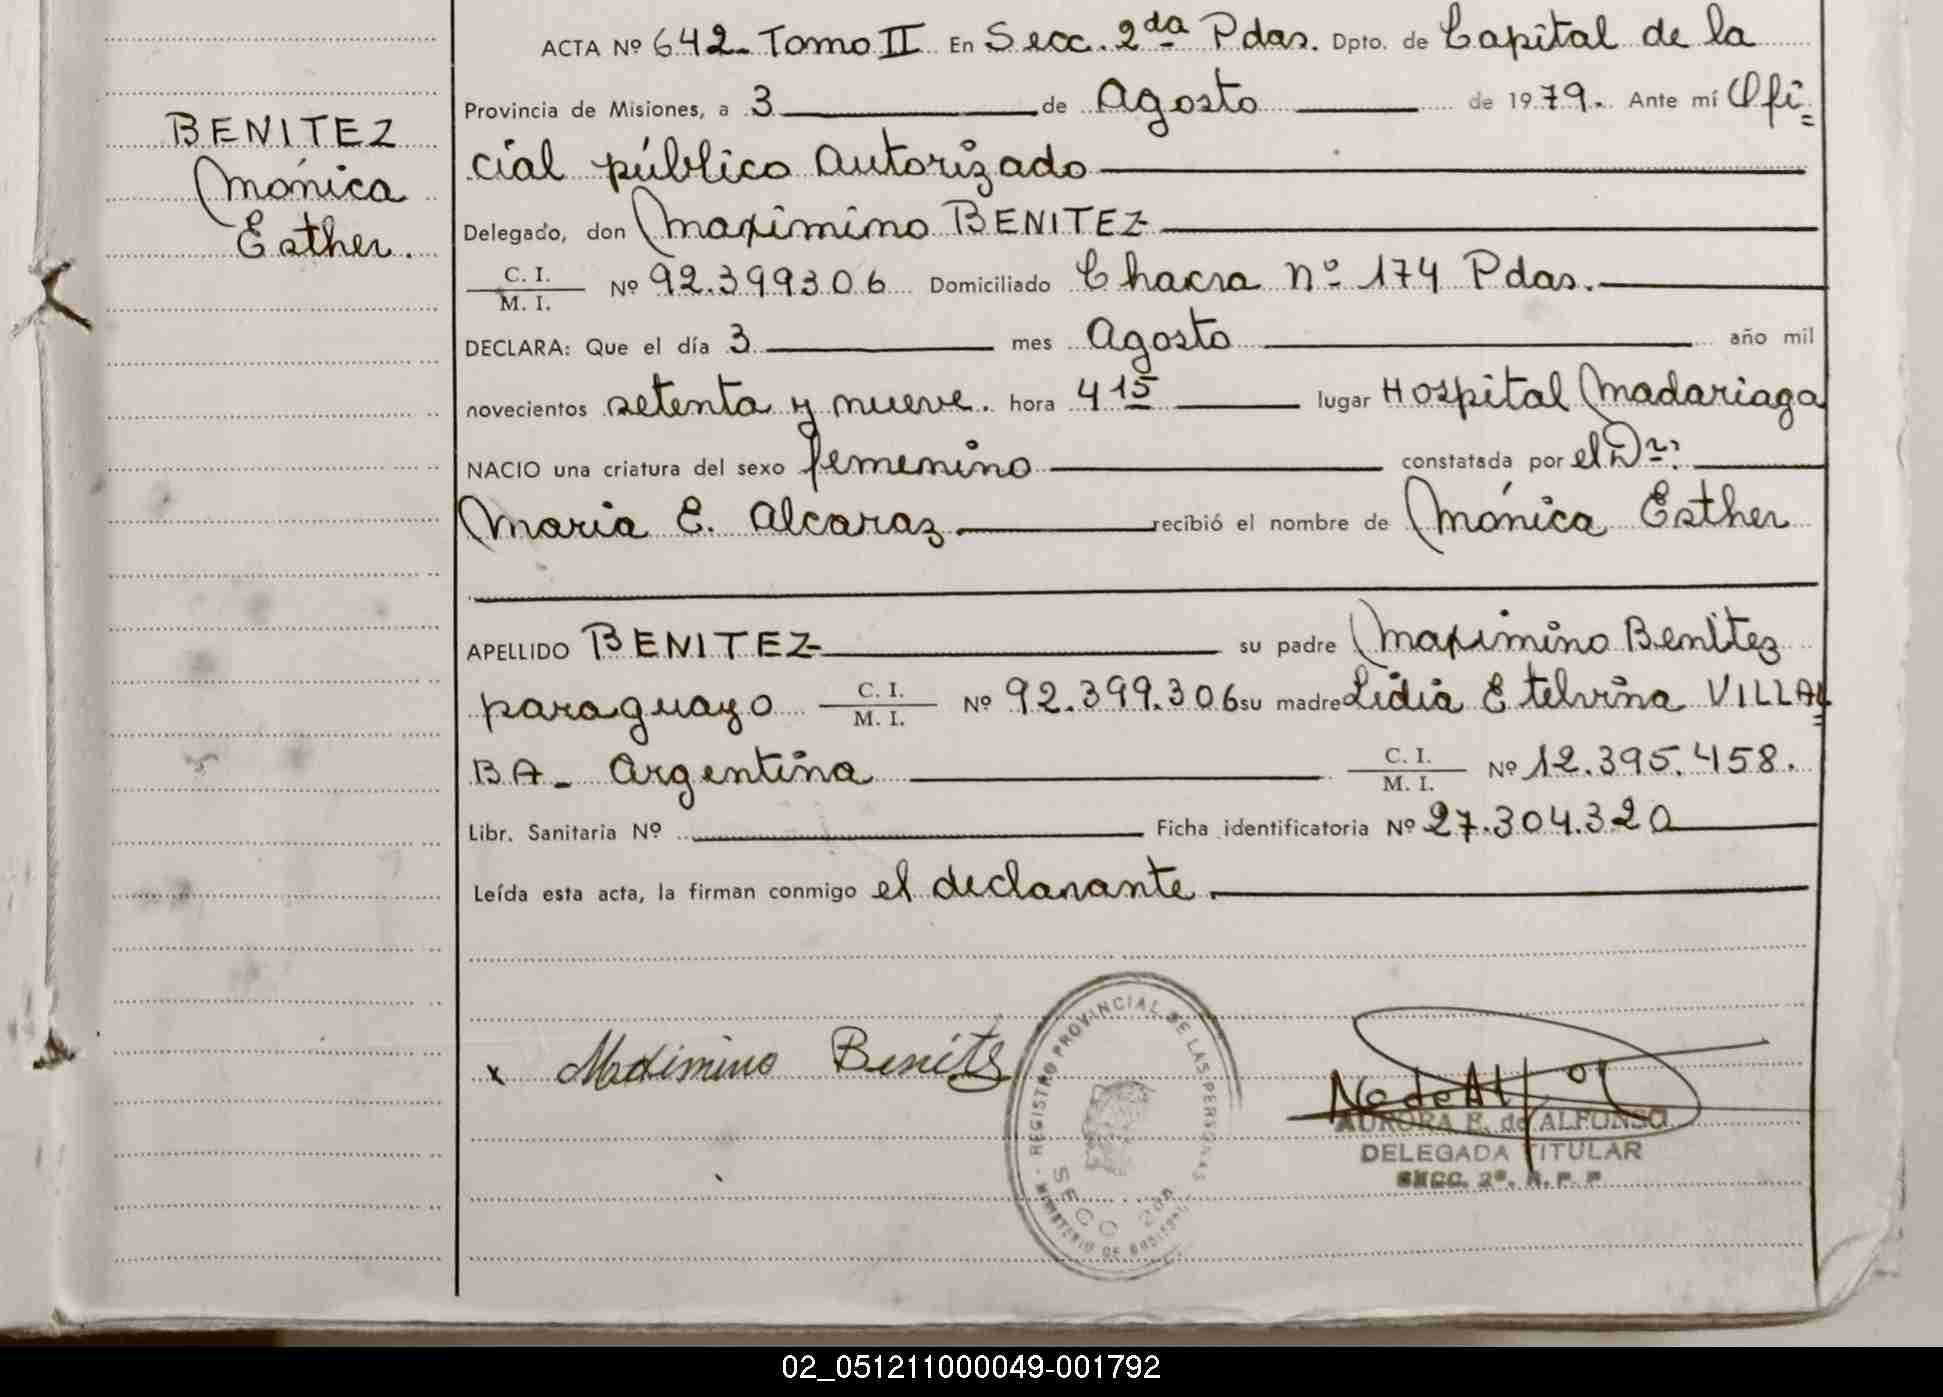 ACTA Nº 642- Tomo II En Secc. 2da Pdas. Dpto. de Capital de la
Provincia de Misiones, a 3 de Agosto de 1979. Ante mí Ofi=
cial público Autorizado
Delegado, don Maximino BENITEZ
C. I.
M. I. Nº 92.399306 Domiciliado Chacra nº 174 Pdas.
DECLARA: Que el día 3 mes Agosto año mil
novecientos setenta y nueve. hora 4 15 lugar Hospital Madariaga
NACIO una criatura del sexo femenino constatada por el Dr:
Maria E. Alcaraz recibió el nombre de Mónica Esther
APELLIDO BENITEZ su padre Maximino Benitez
paraguayo C. I.
M. I. Nº 92.399.306 su madre Lidia Etelvina VILLAL=
BA- Argentina C. I.
M. I. Nº 12.395.458.
Libr. Sanitaria Nº Ficha identificatoria Nº 27.304.320
Leída esta acta, la firman conmigo el declarante.
BENITEZ
Mónica
Esther.
x Maximino Benitez
REGISTRO PROVINCIAL DE LAS PERSONAS
SECC 2da
MINISTERIO DE GOBIERNO
AURORA E. de ALFONSO
DELEGADA TITULAR
SECC. 2ª. R. P. P.
02_051211000049-001792